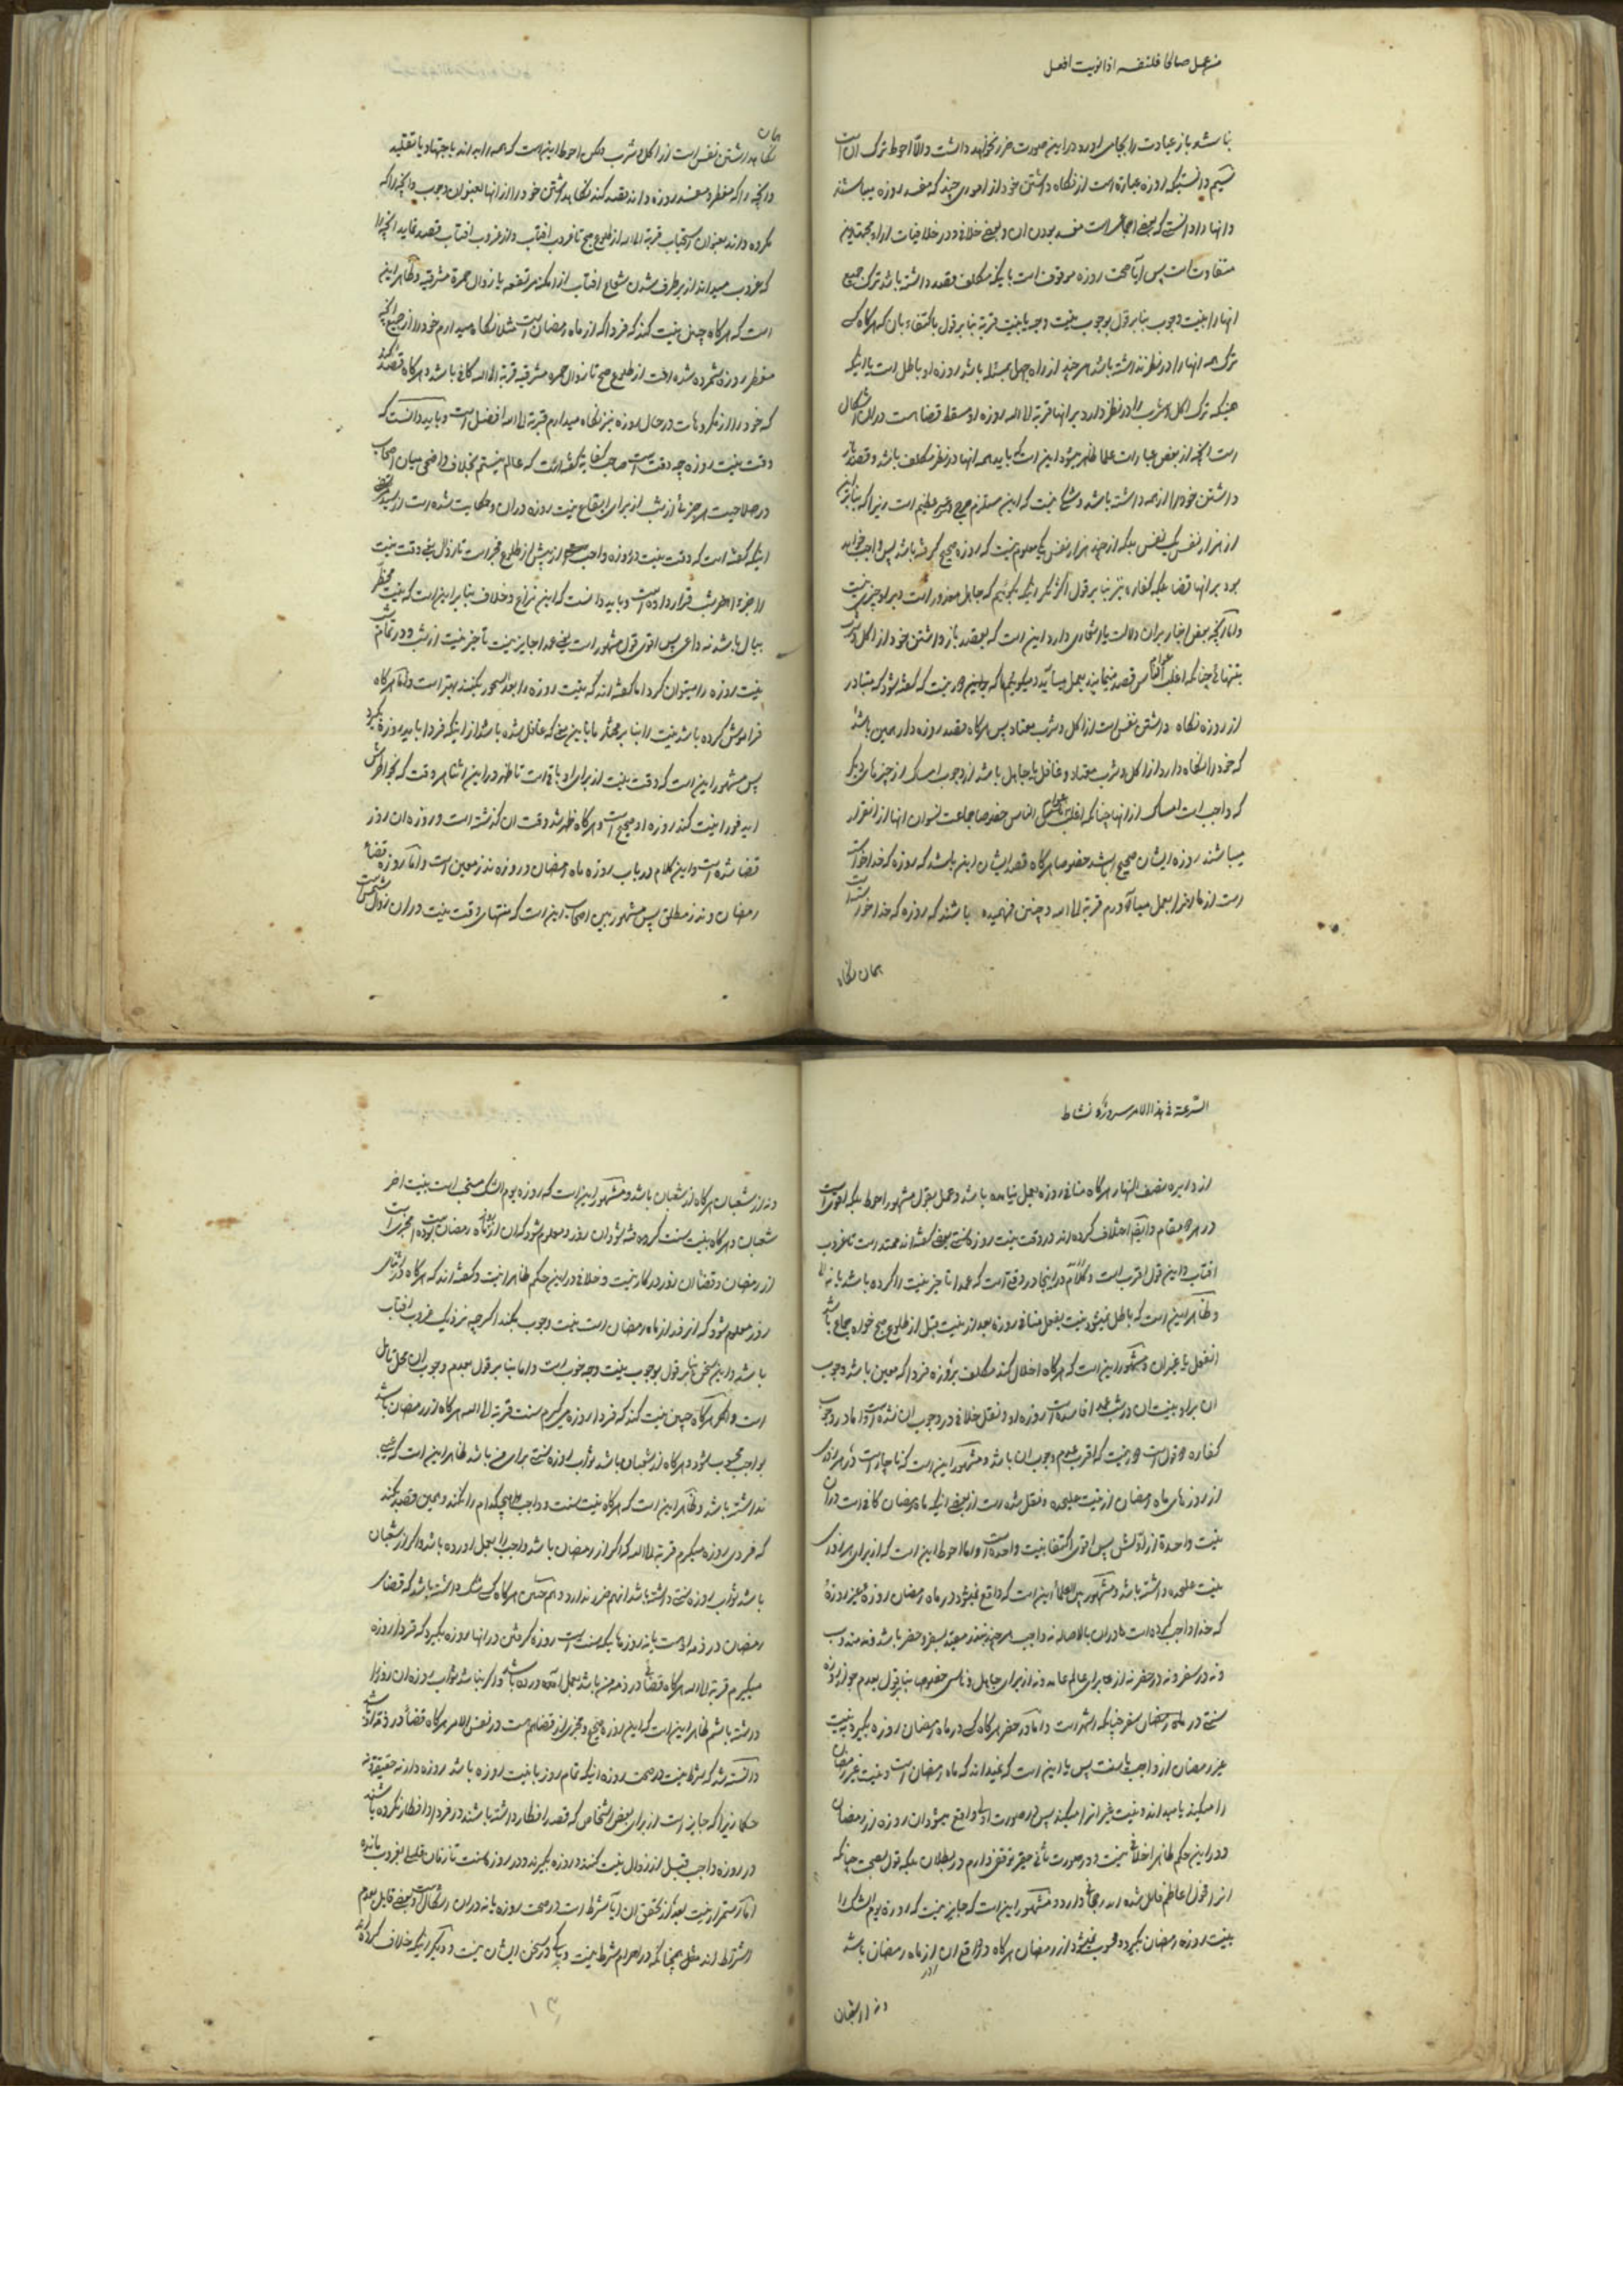 من عمل صالحا فلنفسه اذا نویت افعل
باشد و باز عبادت را بجای اورد در این صورت ضرر نخواهد داشت والا احوط ترک ان است
دانستیکه روزه عبارة است از نکاه داشتن خود از اموری چند که مفسد روزه میباشند
و انها را دانستی که بعضی اجماعی است مفسد بودن ان و بعضی خلافی و در خلافیات اراء مجتهدین
متفاوت است پس ایا صحت روزه موقوف است باینکه مکلف قصد داشته باشد ترک جمیع
انها را بنیت وجوب بنا بر قول بوجوب نیت وجه یا بنیت قربة بنا بر قول باکتفاء بان که هرکاه کسی
ترک همه انها را در نظر نداشته باشد هر چند از راه جهل بمسئله باشد روزه او باطل است یا اینکه
همینکه ترک اکل و شرب را در نظر دارد قربة الی الله روزه او مسقط قضا است در ان اشکال
است انچه از بعض عبارات علما ظاهر میشود این است که باید همه انها در نظر مکلف باشد و قصد باز
داشتن خود را از همه داشته باشد و شکی نیست که این مستلزم حرج و عسر عظیم است زیرا که بنا بر این
از هزار نفس یک نفس بلکه از چند هزار نفس یکی معلوم نیست که روزه صحیح کرفته باشد پس واجب خواهد
بود بر انها قضا بلکه کفاره نیز بنا بر قول اکثر مکر اینکه بکوئیم که جاهل معذور است و بر او چیزی نیست
و اما انچه بعض اخبار بران دلالت یا اشعاری دارد این است که بقصد باز داشتن خود از اکل و شرب
بتنهائی چنانکه اغلب عوام الناس قصد مینمایند بعمل میاید
از روزه نکاه داشتن نفس است از اکل و شرب معتاد پس هرکاه قصد روزه دار همین باشد
که خود را نکاه دارد از اکل و شرب معتاد و غافل یا جاهل باشد از وجوب امساک از چیزهای دیکر
که واجب است امساک از انها چنانکه اغلب عوام الناس خصوصا جماعت نسوان انها از این قرار
میباشند روزه ایشان صحیح باشد خصوصا هرکاه قصد ایشان این باشد که روزه که خدا خواسته
است از ما انرا بعمل میاوریم قربة الی الله و چنین فهمیده باشند که روزه که خدا خواسته است
همان نکاه
همان
نکاهداشتن نفس است از اکل و شرب ولکن احوط این است که همه را بداند باجتهاد یا تقلید
و انچه را که مفطر و مفسد روزه داند قصد کند نکاهداشتن خود را از انها بعنوان وجوب و انچه را که
مکروه داند بعنوان استحباب قربة الی الله از طلوع صبح تا غروب افتاب و از غروب افتاب قصد نماید انچه را
که غروب میداند از برطرف شدن شعاع افتاب از امکنه مرتفعه یا زوال حمرة مشرقیه و ظاهر این
است که هرکاه چنین نیت کند که فردا که از ماه رمضان است مثلا نکاه میدارم خود را از جمیع انچه
مفطر روزه شمرده شده است از طلوع صبح تا زوال حمره مشرقیه قربة الی الله کافی باشد و هرکاه قصد کند
که خود را از مکروهات در حال روزه نیز نکاه میدارم قربة الی الله افضل است و باید دانست که
وقت نیت روزه چه وقت است صاحب کفایه کفته است که عالم نیستم بخلاف واضحی میان اصحاب
در صلاحیت هر جزئی از شب از برای ایقاع نیت روزه در ان و حکایت شده است از سید مرتضی
اینکه کفته است که وقت نیت در روزه واجب از پیش از طلوع فجر است تا زوال یعنی وقت نیت
را جزء اخر شب قرار داده است و باید دانست که این نزاع و خلاف بنا بر این است که نیت مخطر
ببال باشد نه داعی پس اقوی قول مشهور است یعنی عمدا جایز نیست تاخیر نیت از شب و در تمام شب
نیت روزه را میتوان کرد اما کفته اند که نیت روزه را بعد از سحور بکنند بهتر است و اما هرکاه
فراموش کرده باشد نیت را بنا بر مختار ما باین معنی که غافل شده باشد از اینکه فردا باید روزه بکیرد
پس مشهور این است که وقت نیت از برای او باقی است تا ظهر و در این اثنا هر وقت که بخاطرش
اید فورا نیت کند روزه او صحیح است و هرکاه ظهر شد وقت ان کذشته است و روزه ان روز
قضا شده است و این کلام در باب روزه ماه رمضان و روزه نذر معین است و اما روزه قضاء
رمضان و نذر مطلق پس مشهور بین اصحاب این است که منتهای وقت نیت در ان زوال شمس است
السرعة فی هذا الامر سروره نشاط
از دایره نصف النهار هرکاه منافی روزه بعمل نیامده باشد و عمل بقول مشهور احوط بلکه اقوی است
در هر دو مقام و ایضا اختلاف کرده اند در وقت نیت روزه سنتی بعضی کفته اند ممتد است تا غروب
افتاب و این قول اقرب است و کلام در اینجا در وقتی است که عمدا تاخیر نیت را کرده باشد یا نه
و ظاهر این است که باطل نمیشود نیت بفعل منافی روزه بعد از نیت قبل از طلوع صبح خواه جماع باشد
انفعل یا غیر ان و مشهور این است که هرکاه اخلال کند مکلف بروزه فردا که معین باشد وجوب
ان بر او بنیت ان در شب عمدا فاسد است روزه او و نقل خلافی در وجوب ان نشده است و اما در وجوب
کفاره دو قول است دور نیست که اقرب عدم وجوب ان باشد و مشهور این است که ناچار است در هر روزی
از روزهای ماه رمضان از نیت علیحده و نقل شده است از بعضی اینکه ماه رمضان کافی است در ان
نیت واحدة از اولش پس اقوی اکتفا بنیت واحده است و اما احوط این است که از برای هر روزی
نیت علیحده داشته باشد و مشهور بین العلماء این است که واقع نمیشود در ماه رمضان روزه غیر روزهٔ
که خدا واجب کرده است در ان بالاصاله نه واجب هر چند نذر معین بسفر و حضر باشد و نه مندوب
و نه در سفر و نه در حضر نه از برای عالم عامد و نه از برای جاهل و ناسی خصوصا بنا بر قول بعدم جواز روزه
سنتی در ماه رمضان سفر چنانکه اشهر است و اما در حضر هرکاه کسی در ماه رمضان روزه بکیرد بنیت
غیر رمضان از واجب یا سنت پس یا این است که نمیداند که ماه رمضان است و نیت غیر رمضان
را میکند یا میداند و نیت غیر انرا میکند پس در صورت اولی واقع میشود ان روزه از رمضان
و در این حکم ظاهرا خلافی نیست و در صورت ثانی حقیر توقف دارم در بطلان بلکه قول بصحت چنانکه
انرا قول اعاظم قائل شده اند رجحانی دارد و مشهور این است که جایز نیست که روزه یوم الشک را
بنیت روزه رمضان بکیرد و محسوب نمیشود از رمضان هرکاه در واقع ان روز از ماه رمضان باشد
و نه از شعبان
و نه از شعبان هرکاه از شعبان باشد و مشهور این است که روزه یوم الشک مستحب است بنیت اخر
شعبان و هرکاه بنیت سنت کرفته شود ان روز و معلوم شود که ان روز از ماه رمضان بوده است مجزی است
از رمضان و قضاء ان روز در کار نیست و خلافی در این حکم ظاهرا نیست و کفته اند که هرکاه در اثنای
روز معلوم شود که انروز از ماه رمضان است نیت وجوب بکند اکرچه نزدیک غروب افتاب
باشد و این سخن بنا بر قول بوجوب نیت وجه خوب است و اما بنا بر قول بعدم وجوب ان محل تامل
است و لکن هرکاه چنین نیت کند که فردا روزه میکیرم سنت قربة الی الله هرکاه از رمضان باشد
بواجب محسوب شود و هرکاه از شعبان باشد ثواب روزه سنتی برای من باشد ظاهر این است که عیبی
نداشته باشد و ظاهر این است که هرکاه نیت سنت و واجب هیچکدام را نکند و همین قصد کند
که فردا روزه میکیرم قربة الی الله که اکر از رمضان باشد واجب را بعمل اورده باشد و اکر از شعبان
باشد ثواب روزه سنتی داشته باشد انهم ضرر ندارد و همچنین هرکاه کسی شک داشته باشد که قضای
رمضان در ذمه او است یا نه روزهائیکه سنت است روزه کرفتن در انها روزه بکیرد که فردا روزه
میکیرم قربة الی الله هرکاه قضائی در ذمه من باشد بعمل اورده باشم و اکر نباشد ثواب روزه ان روز را
داشته باشم ظاهر این است که این روزه صحیح و مجزی از قضا است در نفس الامر هرکاه قضا در ذمه او باشد
دانسته شد که شرط نیست در صحت روزه اینکه تمام روز با نیت روزه باشد روزه دار نه حقیقة و نه
حکما زیرا که جایز است از برای بعض اشخاص که قصد افطار داشته باشند در فردا و افطار نکرده باشند
در روزه واجب قبل از زوال نیت کنند و روزه بکیرند و در روزه سنت تا زمان قلیلی بغروب مانده
اما استمرار نیت بعد از تحقق ان ایا شرط است در صحت روزه یا نه در ان اشکال است و بعضی قایل بعدم
اشتراط اند مثل چنانکه در احرام شرط نیست و باکی در سخن ایشان نیست و دیکر اینکه خلاف کرده اند
۱۳